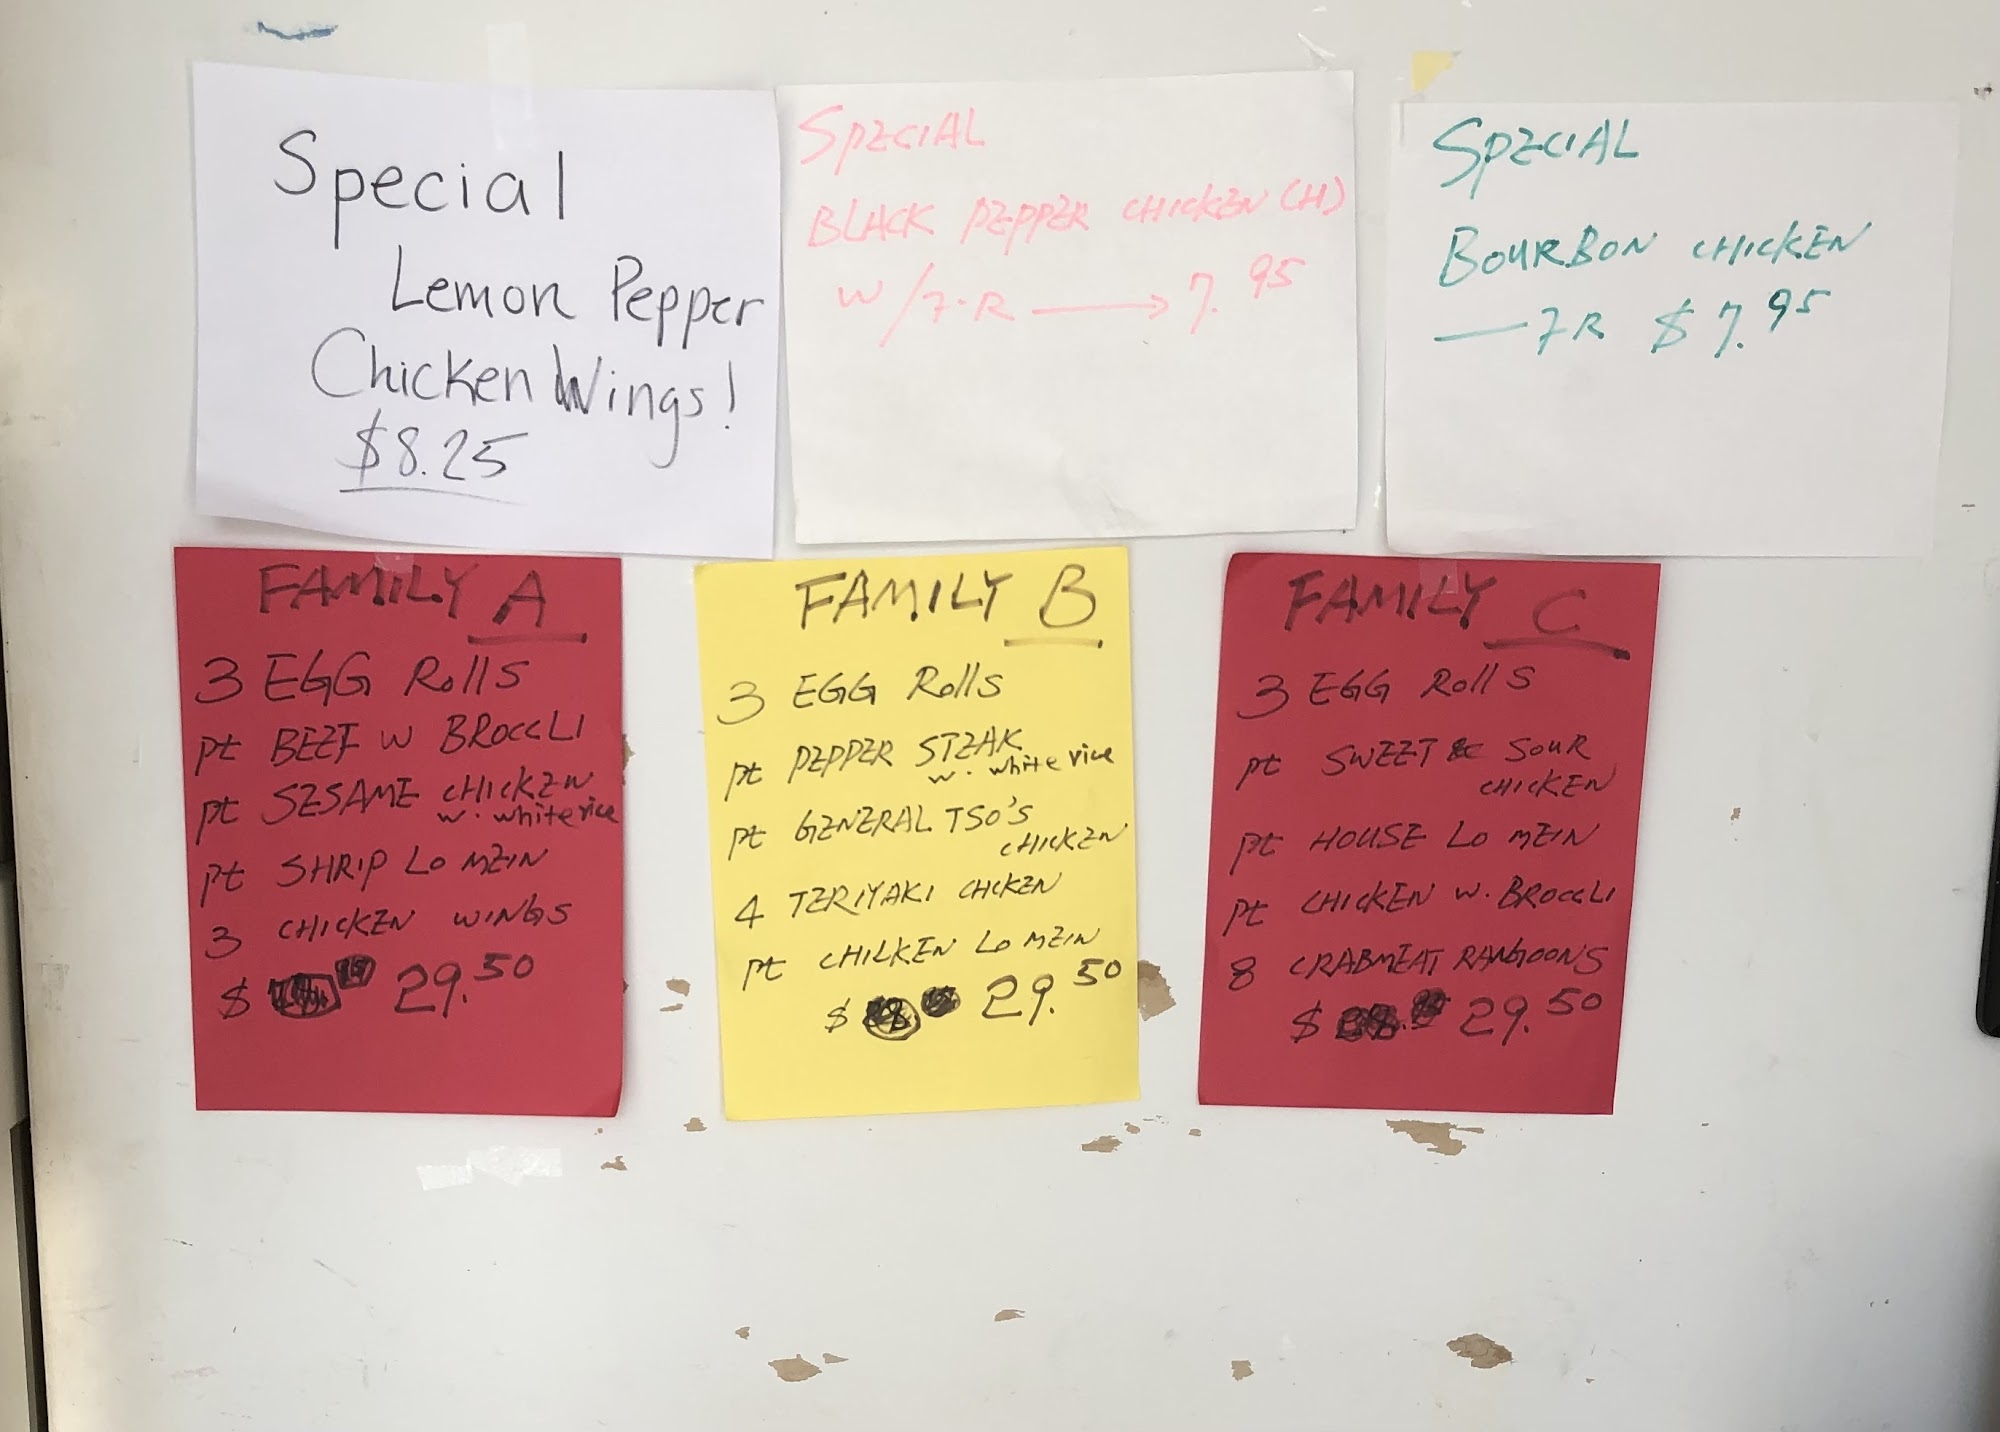 Special
Lemon Pepper
Chicken Wings!
$8.25
SPECIAL
BLACK PEPPER CHICKEN (H)
W/7.R → 7.95
SPECIAL
BOURBON CHICKEN
— 7R $7.95
FAMILY A
3 EGG Rolls
pt BEEF W BROCCLI
pt SESAME CHICKEN
w. white rice
pt SHRIP LO MEIN
3 CHICKEN WINGS
$ 29.50
FAMILY B
3 EGG Rolls
pt PEPPER STEAK
w. white rice
pt GENERAL TSO'S
CHICKEN
4 TERIYAKI CHCKEN
pt CHICKEN LO MEIN
$ 29.50
FAMILY C
3 EGG Rolls
pt SWEET & SOUR
CHICKEN
pt HOUSE LO MEIN
pt CHICKEN W. BROCCLI
8 CRABMEAT RANGOONS
$ 29.50